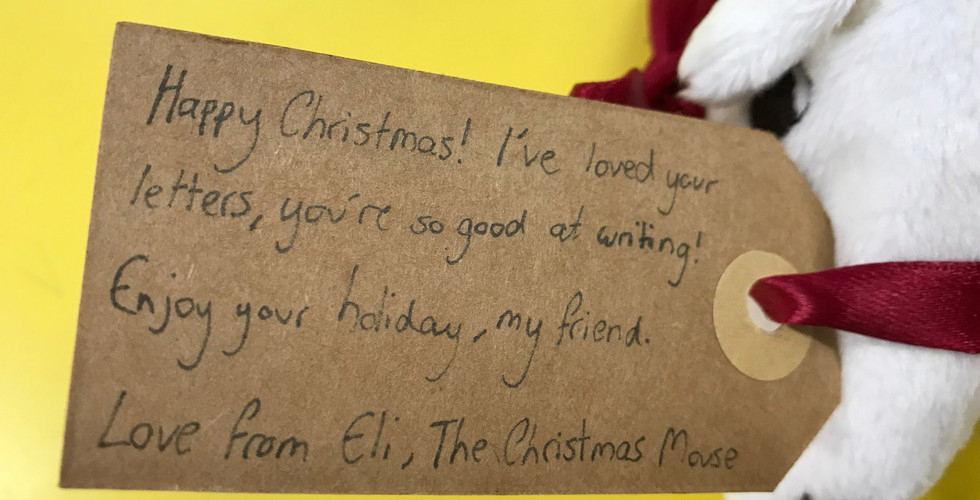 Happy Christmas! I've loved your
letters, you're so good at writing!
Enjoy your holiday, my friend.
Love from Eli, The Christmas Mouse